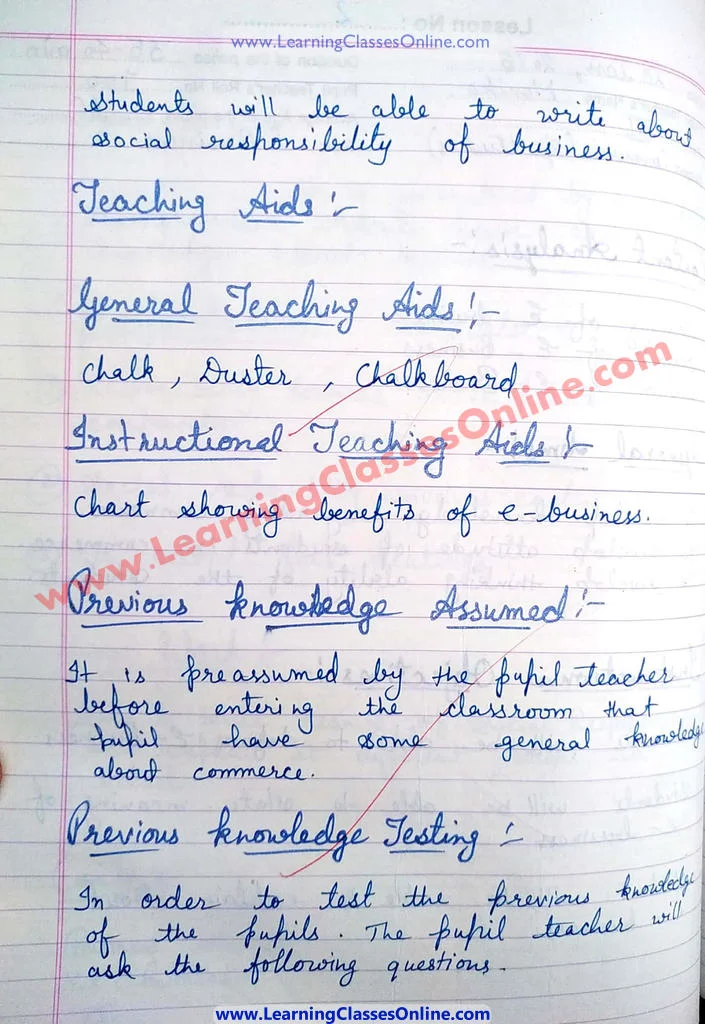 Lesson No.
www.LearningClassesOnline.com
students will be able to write about
social responsibility of business.
Teaching Aids :-
General Teaching Aids :-
Chalk, Duster, Chalkboard
Instructional Teaching Aids :-
Chart showing benefits of e-business.
www.LearningClassesOnline.com
Previous knowledge Assumed :-
It is preassumed by the pupil teacher
before entering the classroom that
pupil have some general knowledge
about commerce.
Previous knowledge Testing :-
In order to test the previous knowledge
of the pupils. The pupil teacher will
ask the following questions.
www.LearningClassesOnline.com